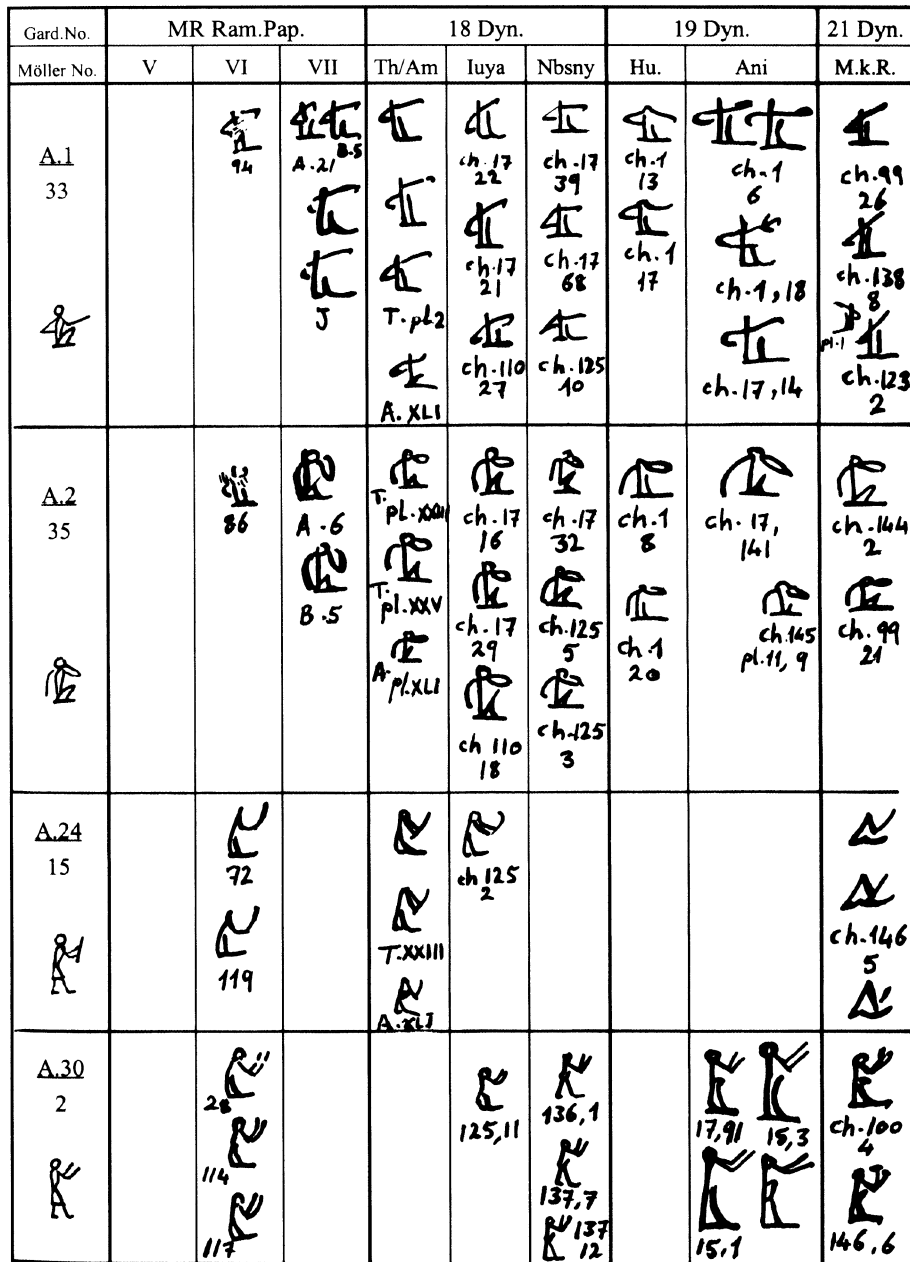 Gard.No. MR Ram.Pap. 18 Dyn. 19 Dyn. 21 Dyn.
Möller No. V VI VII Th/Am Iuya Nbsny Hu. Ani M.k.R.
A.1
33
94
A.21 B.5
J
T.pl.2
A.XLI
ch.17
22
ch.17
21
ch.110
27
ch.17
39
ch.17
68
ch.125
10
ch.1
13
ch.1
17
ch.1
6
ch.1,18
ch.17,14
ch.99
26
ch.138
8
pl.1
ch.123
2
A.2
35
86
A.6
B.5
T.
pl.XXIII
T.
pl.XXV
A.
pl.XLI
ch.17
16
ch.17
29
ch 110
18
ch.17
32
ch.125
5
ch.125
3
ch.1
8
ch.1
20
ch.17,
141
ch.145
pl.11, 9
ch.144
2
ch.99
21
A.24
15
72
119
T.XXIII
A.XLI
ch 125
2
ch.146
5
A.30
2
28
114
117
125,11
136,1
137,7
137
12
17,91 15,3
15,1
ch.100
4
146,6